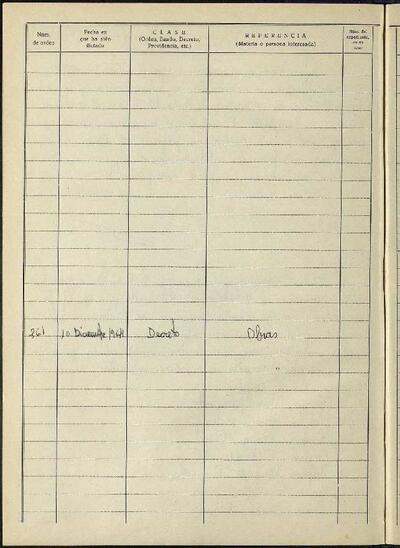 Núm. de orden
Fecha en que ha sido dictado
CLASE (Orden, Bando, Decreto, Providencia, etc.)
REFERENCIA (Materia o persona interesada)
Núm. del
261 10 Diciembre 1964 Decreto Obras